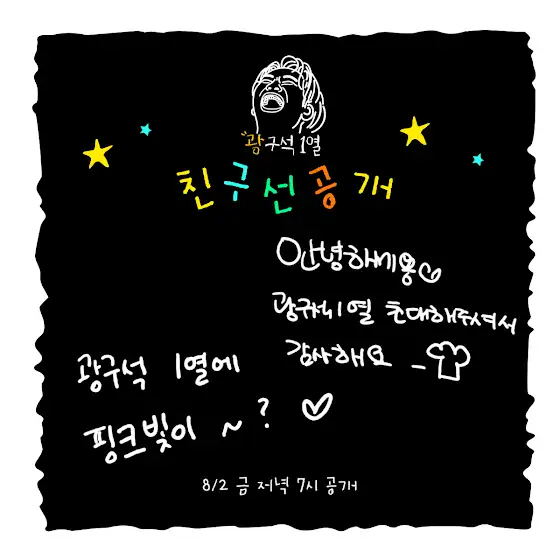 광구석 1열
친구선공개
안녕하세용
광구석 1열 초대해주셔서
감사해요
광구석 1열에
핑크빛이 ~ ?
8/2 금 저녁 7시 공개